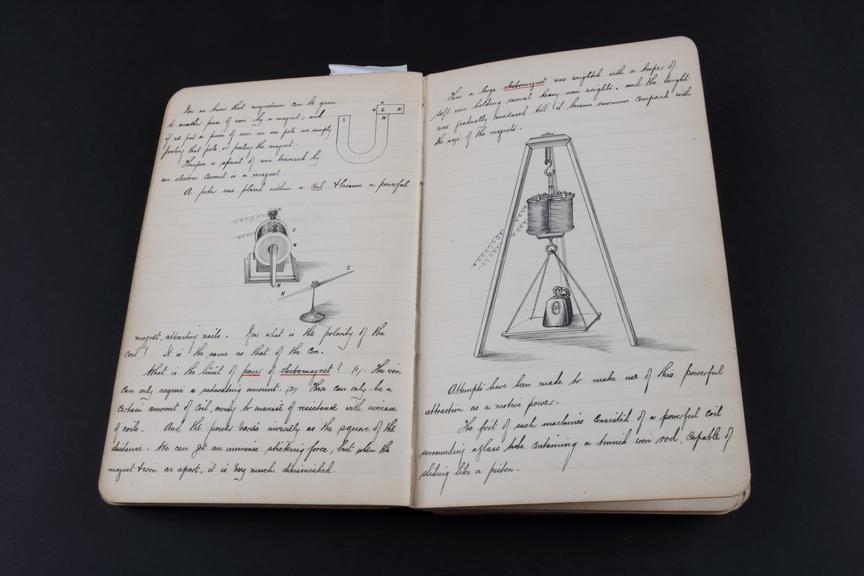 Now we know that magnetism can be given
to another piece of iron by a magnet, and
if we put a piece of iron on one pole we simply
prolong that pole, or prolong the magnet.
Therefore a spiral of wire traversed by
an electric current is a magnet.
A poker was placed within a coil & became a powerful
S
N
S
N
S
N
N
S
magnet, attracting nails. Now what is the polarity of the
coil? It is the same as that of the core.
What is the limit of power of electromagnet? (1). The iron
can only acquire a saturating amount. (2) There can only be a
certain amount of coil, owing to increase of resistance with increase
of coils. And the power varies inversely as the square of the
distance. We can get an immense sticking force, but when the
magnet & iron are apart, it is very much diminished.
Then a large electromagnet was weighted with a keeper of
soft iron holding several heavy iron weights, and the weight
was gradually increased till it became enormous compared with
the size of the magnets.
Attempts have been made to make use of this powerful
attraction as a motive power.
The first of such machines consisted of a powerful coil
surrounding a glass tube containing a tinned iron rod, capable of
sliding like a piston.